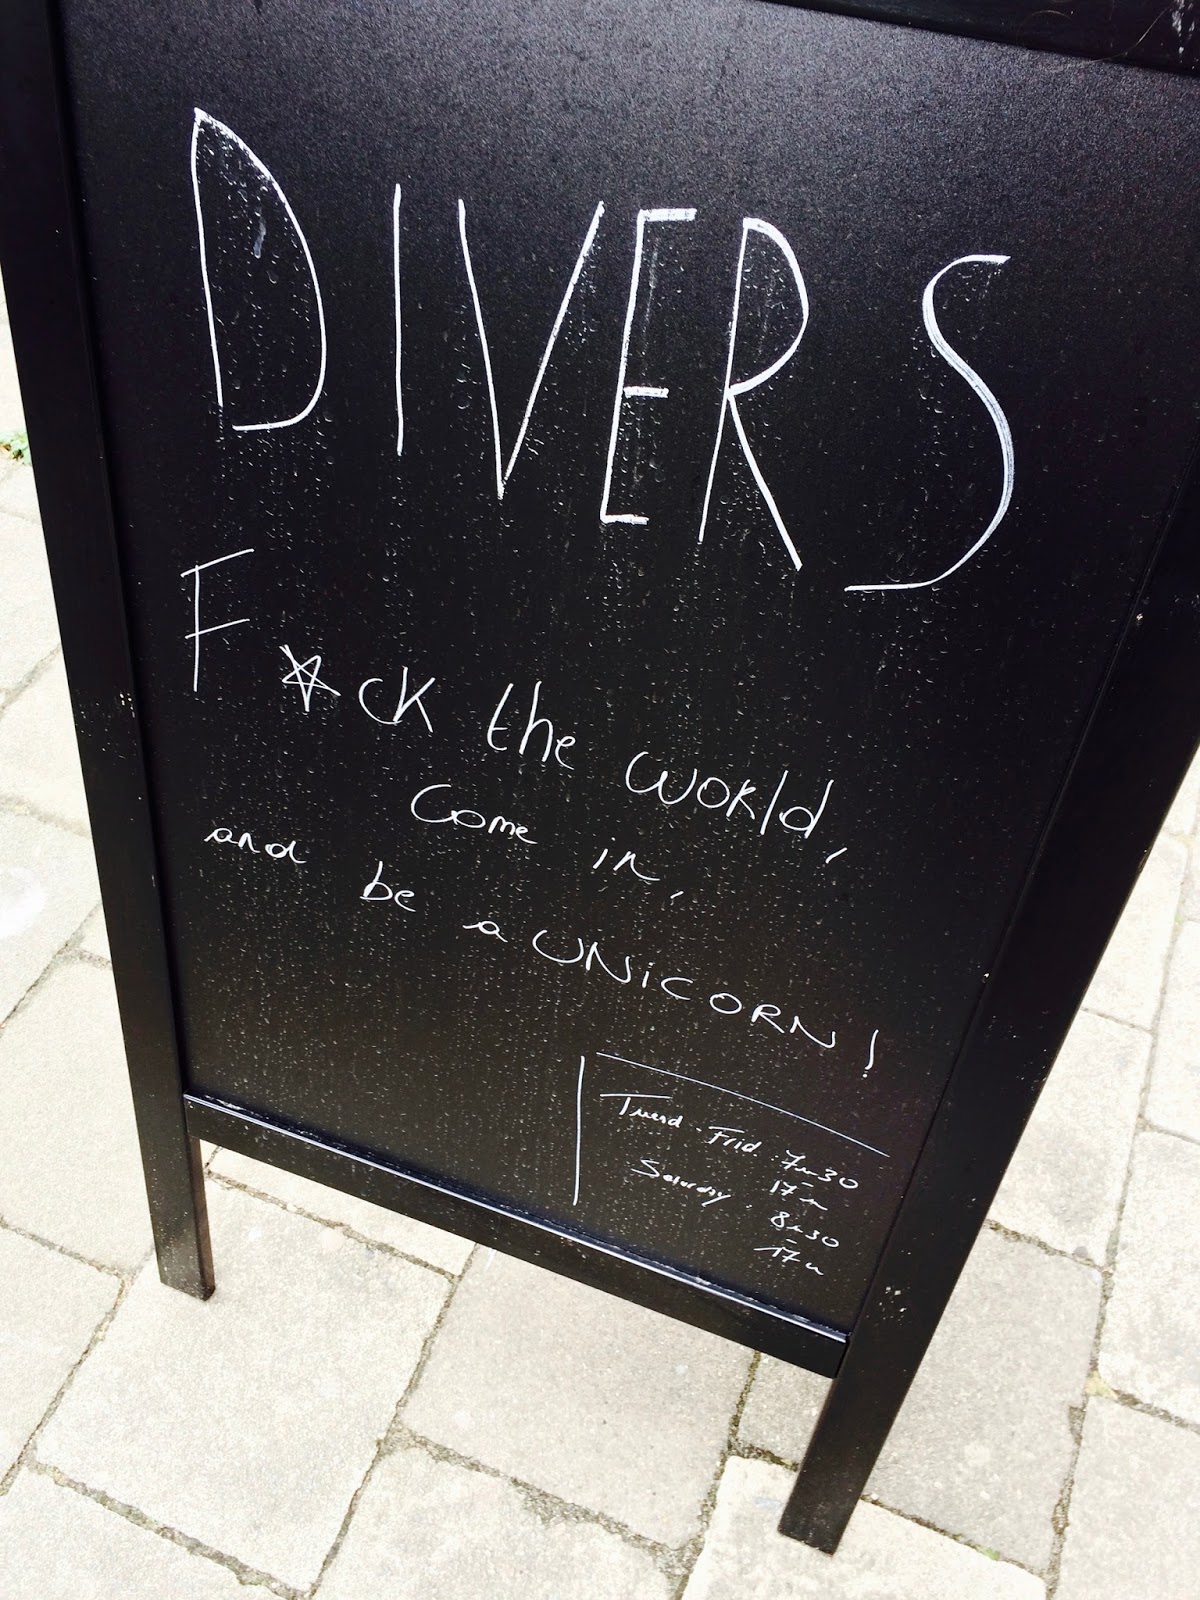 DIVERS
F*ck the world,
Come in,
and be a UNiCORN!
Tuesd - Frid : 7u30
-
17u
Saturday : 8u30
-
17u